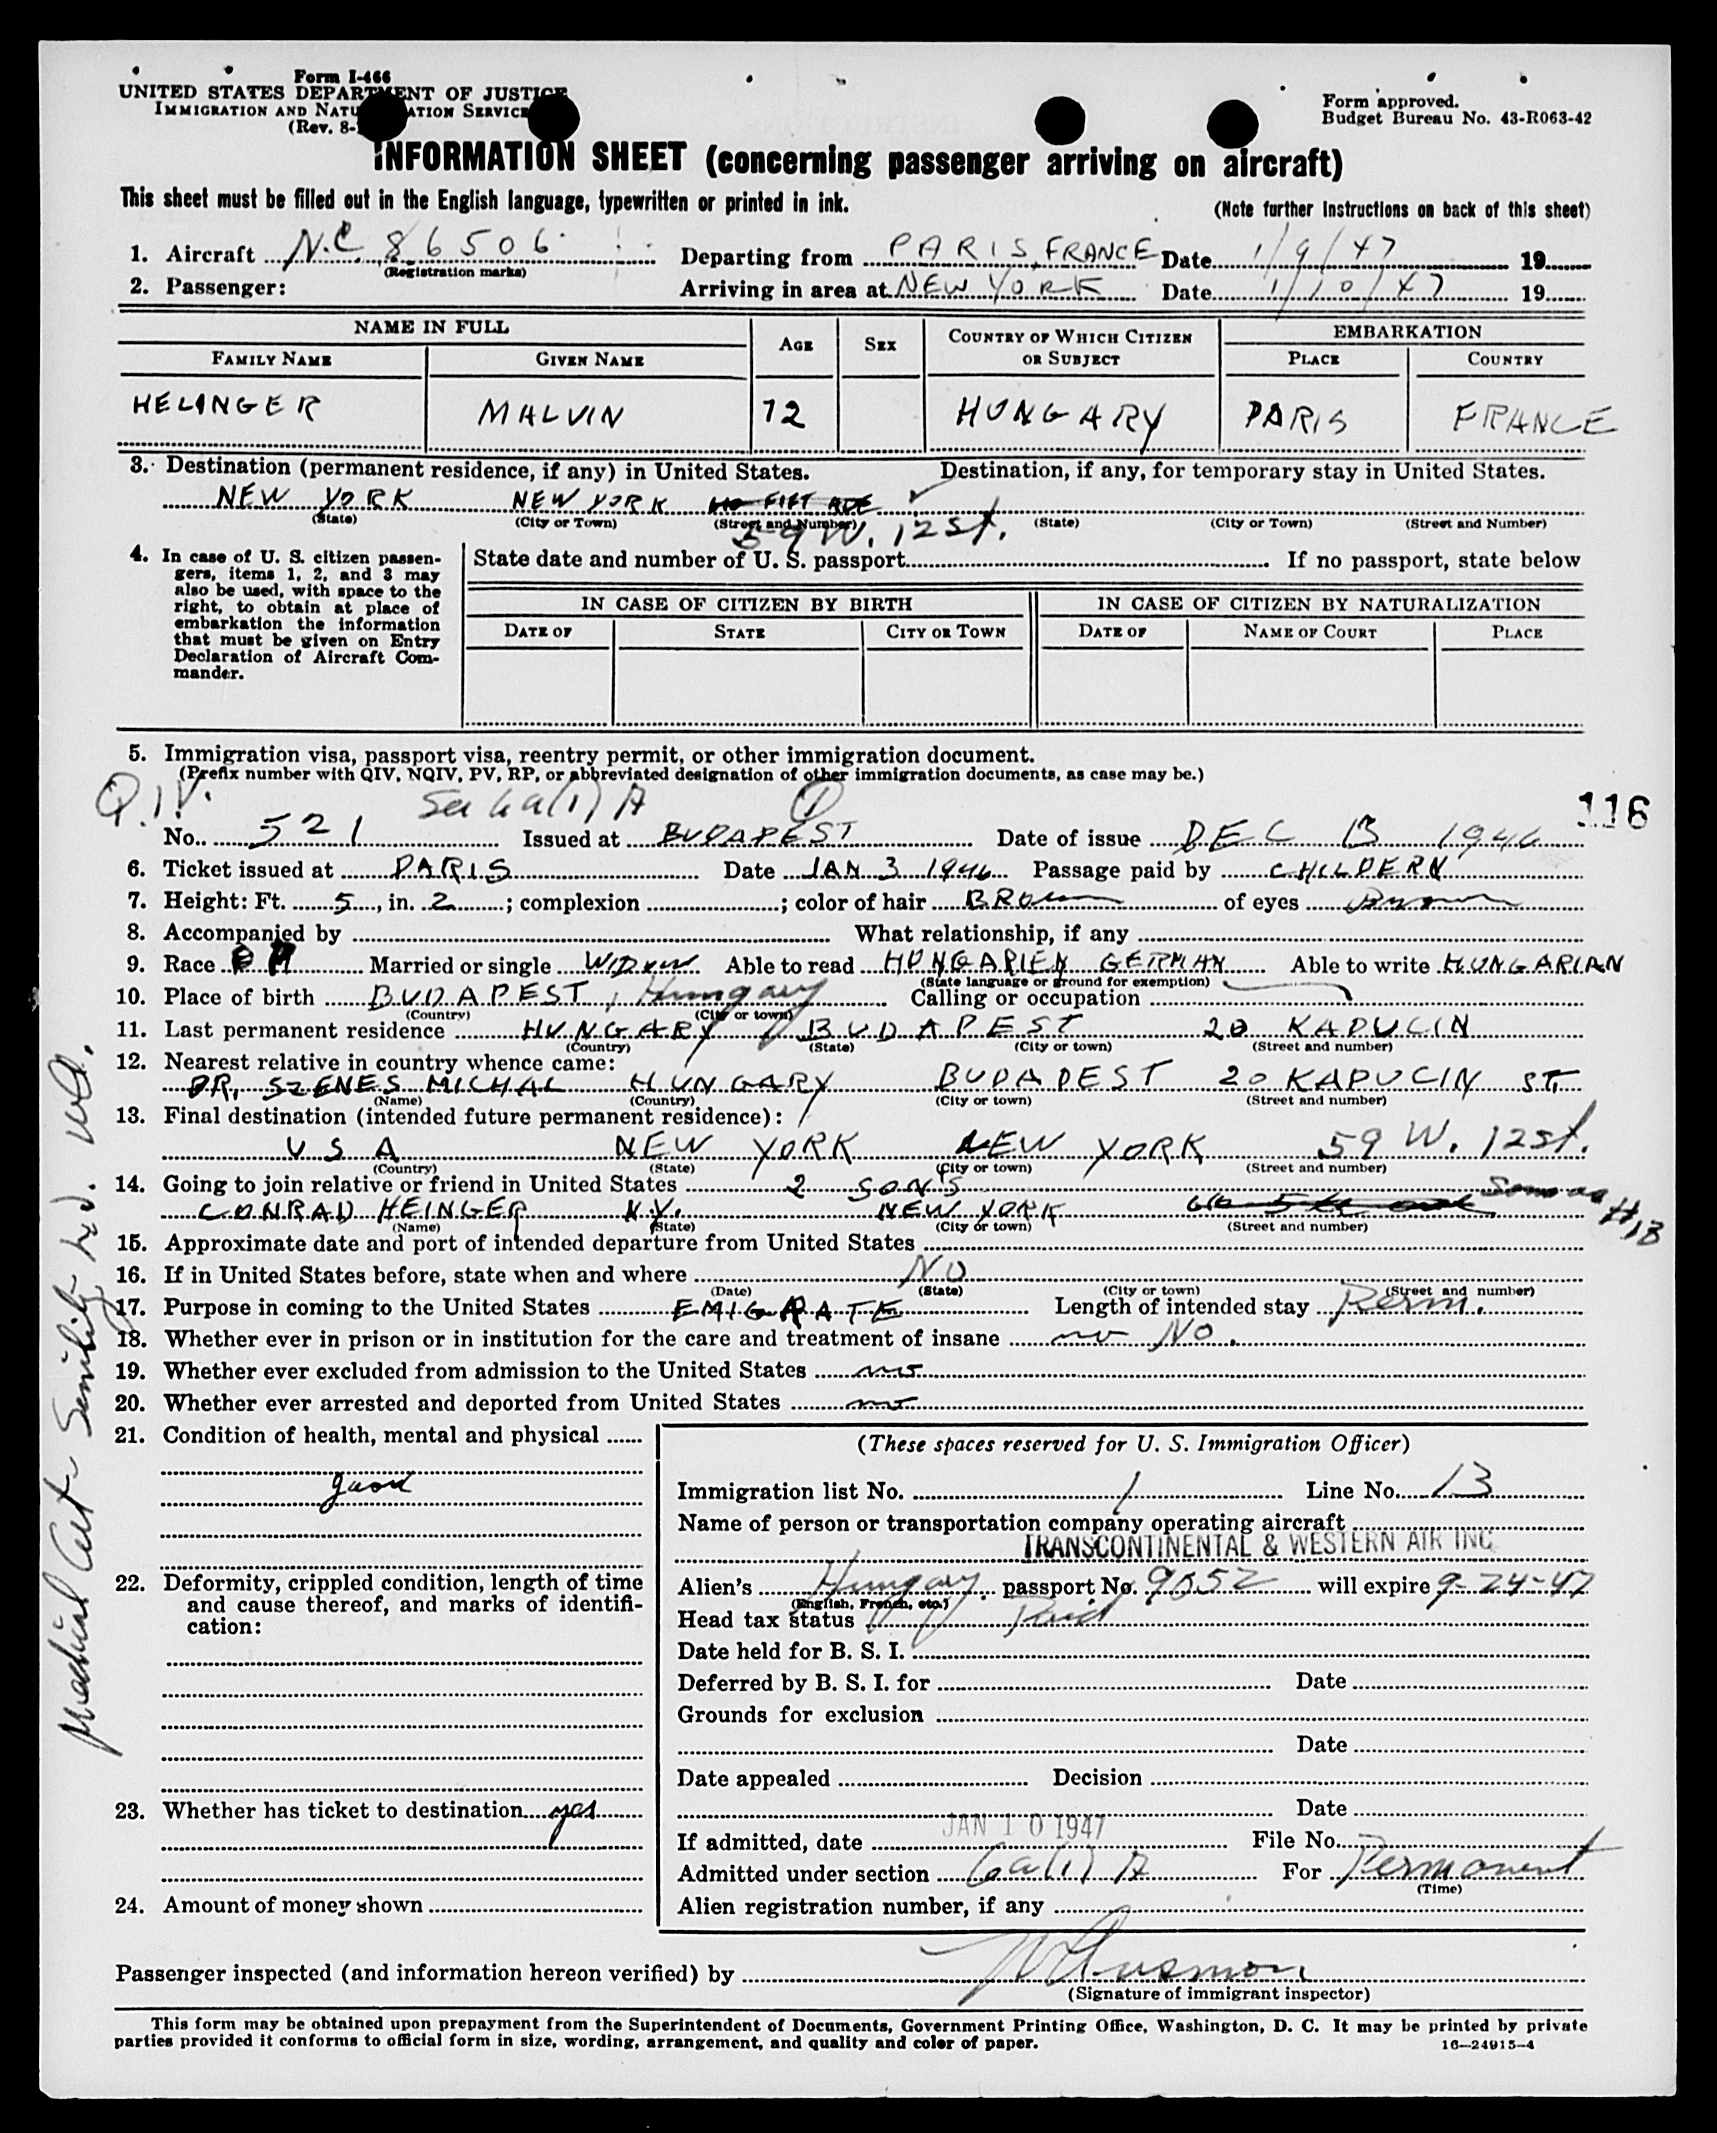 Form I-466
UNITED STATES DEPARTMENT OF JUSTICE
IMMIGRATION AND NATU ATION SERVICE
(Rev. 8-
Form approved.
Budget Bureau No. 43-R063-42
INFORMATION SHEET (concerning passenger arriving on aircraft)
This sheet must be filled out in the English language, typewritten or printed in ink.
(Note further instructions on back of this sheet)
1. Aircraft N.C. 86506 Departing from PARIS, FRANCE Date 1/9/47 19
(Registration marks)
2. Passenger: Arriving in area at NEW YORK Date 1/10/47 19
NAME IN FULL AGE SEX COUNTRY OF WHICH CITIZEN OR SUBJECT EMBARKATION
FAMILY NAME GIVEN NAME PLACE COUNTRY
HELINGER MALVIN 72 HUNGARY PARIS FRANCE
3. Destination (permanent residence, if any) in United States. Destination, if any, for temporary stay in United States.
NEW YORK NEW YORK FIFT AVE
(State) (City or Town) (Street and Number) (State) (City or Town) (Street and Number)
59 W. 12 St.
4. In case of U. S. citizen passen-
gers, items 1, 2, and 3 may
also be used, with space to the
right, to obtain at place of
embarkation the information
that must be given on Entry
Declaration of Aircraft Com-
mander.
State date and number of U. S. passport If no passport, state below
IN CASE OF CITIZEN BY BIRTH IN CASE OF CITIZEN BY NATURALIZATION
DATE OF STATE CITY OR TOWN DATE OF NAME OF COURT PLACE
5. Immigration visa, passport visa, reentry permit, or other immigration document.
(Prefix number with QIV, NQIV, PV, RP, or abbreviated designation of other immigration documents, as case may be.)
Q.I.V. Sec 6a(1) A 1
116
No. 521 Issued at BUDAPEST Date of issue DEC 13 1946
6. Ticket issued at PARIS Date JAN 3 1946 Passage paid by CHILDERN
7. Height: Ft. 5, in. 2; complexion ; color of hair BROwn of eyes Brown
8. Accompanied by What relationship, if any
9. Race Married or single WIDow Able to read HUNGARIEN GERMAN Able to write HUNGARIAN
(State language or ground for exemption)
10. Place of birth BUDAPEST, Hungary Calling or occupation
(Country) (City or town)
11. Last permanent residence HUNGARY BUDAPEST 20 KAPUCIN
(Country) (State) (City or town) (Street and number)
12. Nearest relative in country whence came:
DR. SZENES MICHAL HUNGARY BUDAPEST 20 KAPUCIN ST.
(Name) (Country) (City or town) (Street and number)
13. Final destination (intended future permanent residence):
USA NEW YORK NEW YORK 59 W. 12 St.
(Country) (State) (City or town) (Street and number)
14. Going to join relative or friend in United States 2 SON'S
CONRAD HEINGER N.Y. NEW YORK Same as #13
(Name) (State) (City or town) (Street and number)
15. Approximate date and port of intended departure from United States
16. If in United States before, state when and where NO
(Date) (State) (City or town) (Street and number)
17. Purpose in coming to the United States EMIGRATE Length of intended stay Perm.
18. Whether ever in prison or in institution for the care and treatment of insane no NO.
19. Whether ever excluded from admission to the United States no
20. Whether ever arrested and deported from United States no
21. Condition of health, mental and physical
good
22. Deformity, crippled condition, length of time
and cause thereof, and marks of identifi-
cation:
23. Whether has ticket to destination yes
24. Amount of money shown
(These spaces reserved for U. S. Immigration Officer)
Immigration list No. 1 Line No. 13
Name of person or transportation company operating aircraft
TRANSCONTINENTAL & WESTERN AIR INC
Alien's Hungary passport No. 9552 will expire 9-24-47
(English, French, etc.)
Head tax status Paid
Date held for B. S. I.
Deferred by B. S. I. for Date
Grounds for exclusion
Date
Date appealed Decision
Date
If admitted, date JAN 10 1947 File No.
Admitted under section 6a(1) A For Permanent
(Time)
Alien registration number, if any
Passenger inspected (and information hereon verified) by
(Signature of immigrant inspector)
This form may be obtained upon prepayment from the Superintendent of Documents, Government Printing Office, Washington, D. C. It may be printed by private
parties provided it conforms to official form in size, wording, arrangement, and quality and color of paper.
16—24915-4
Medical Cert. Senility